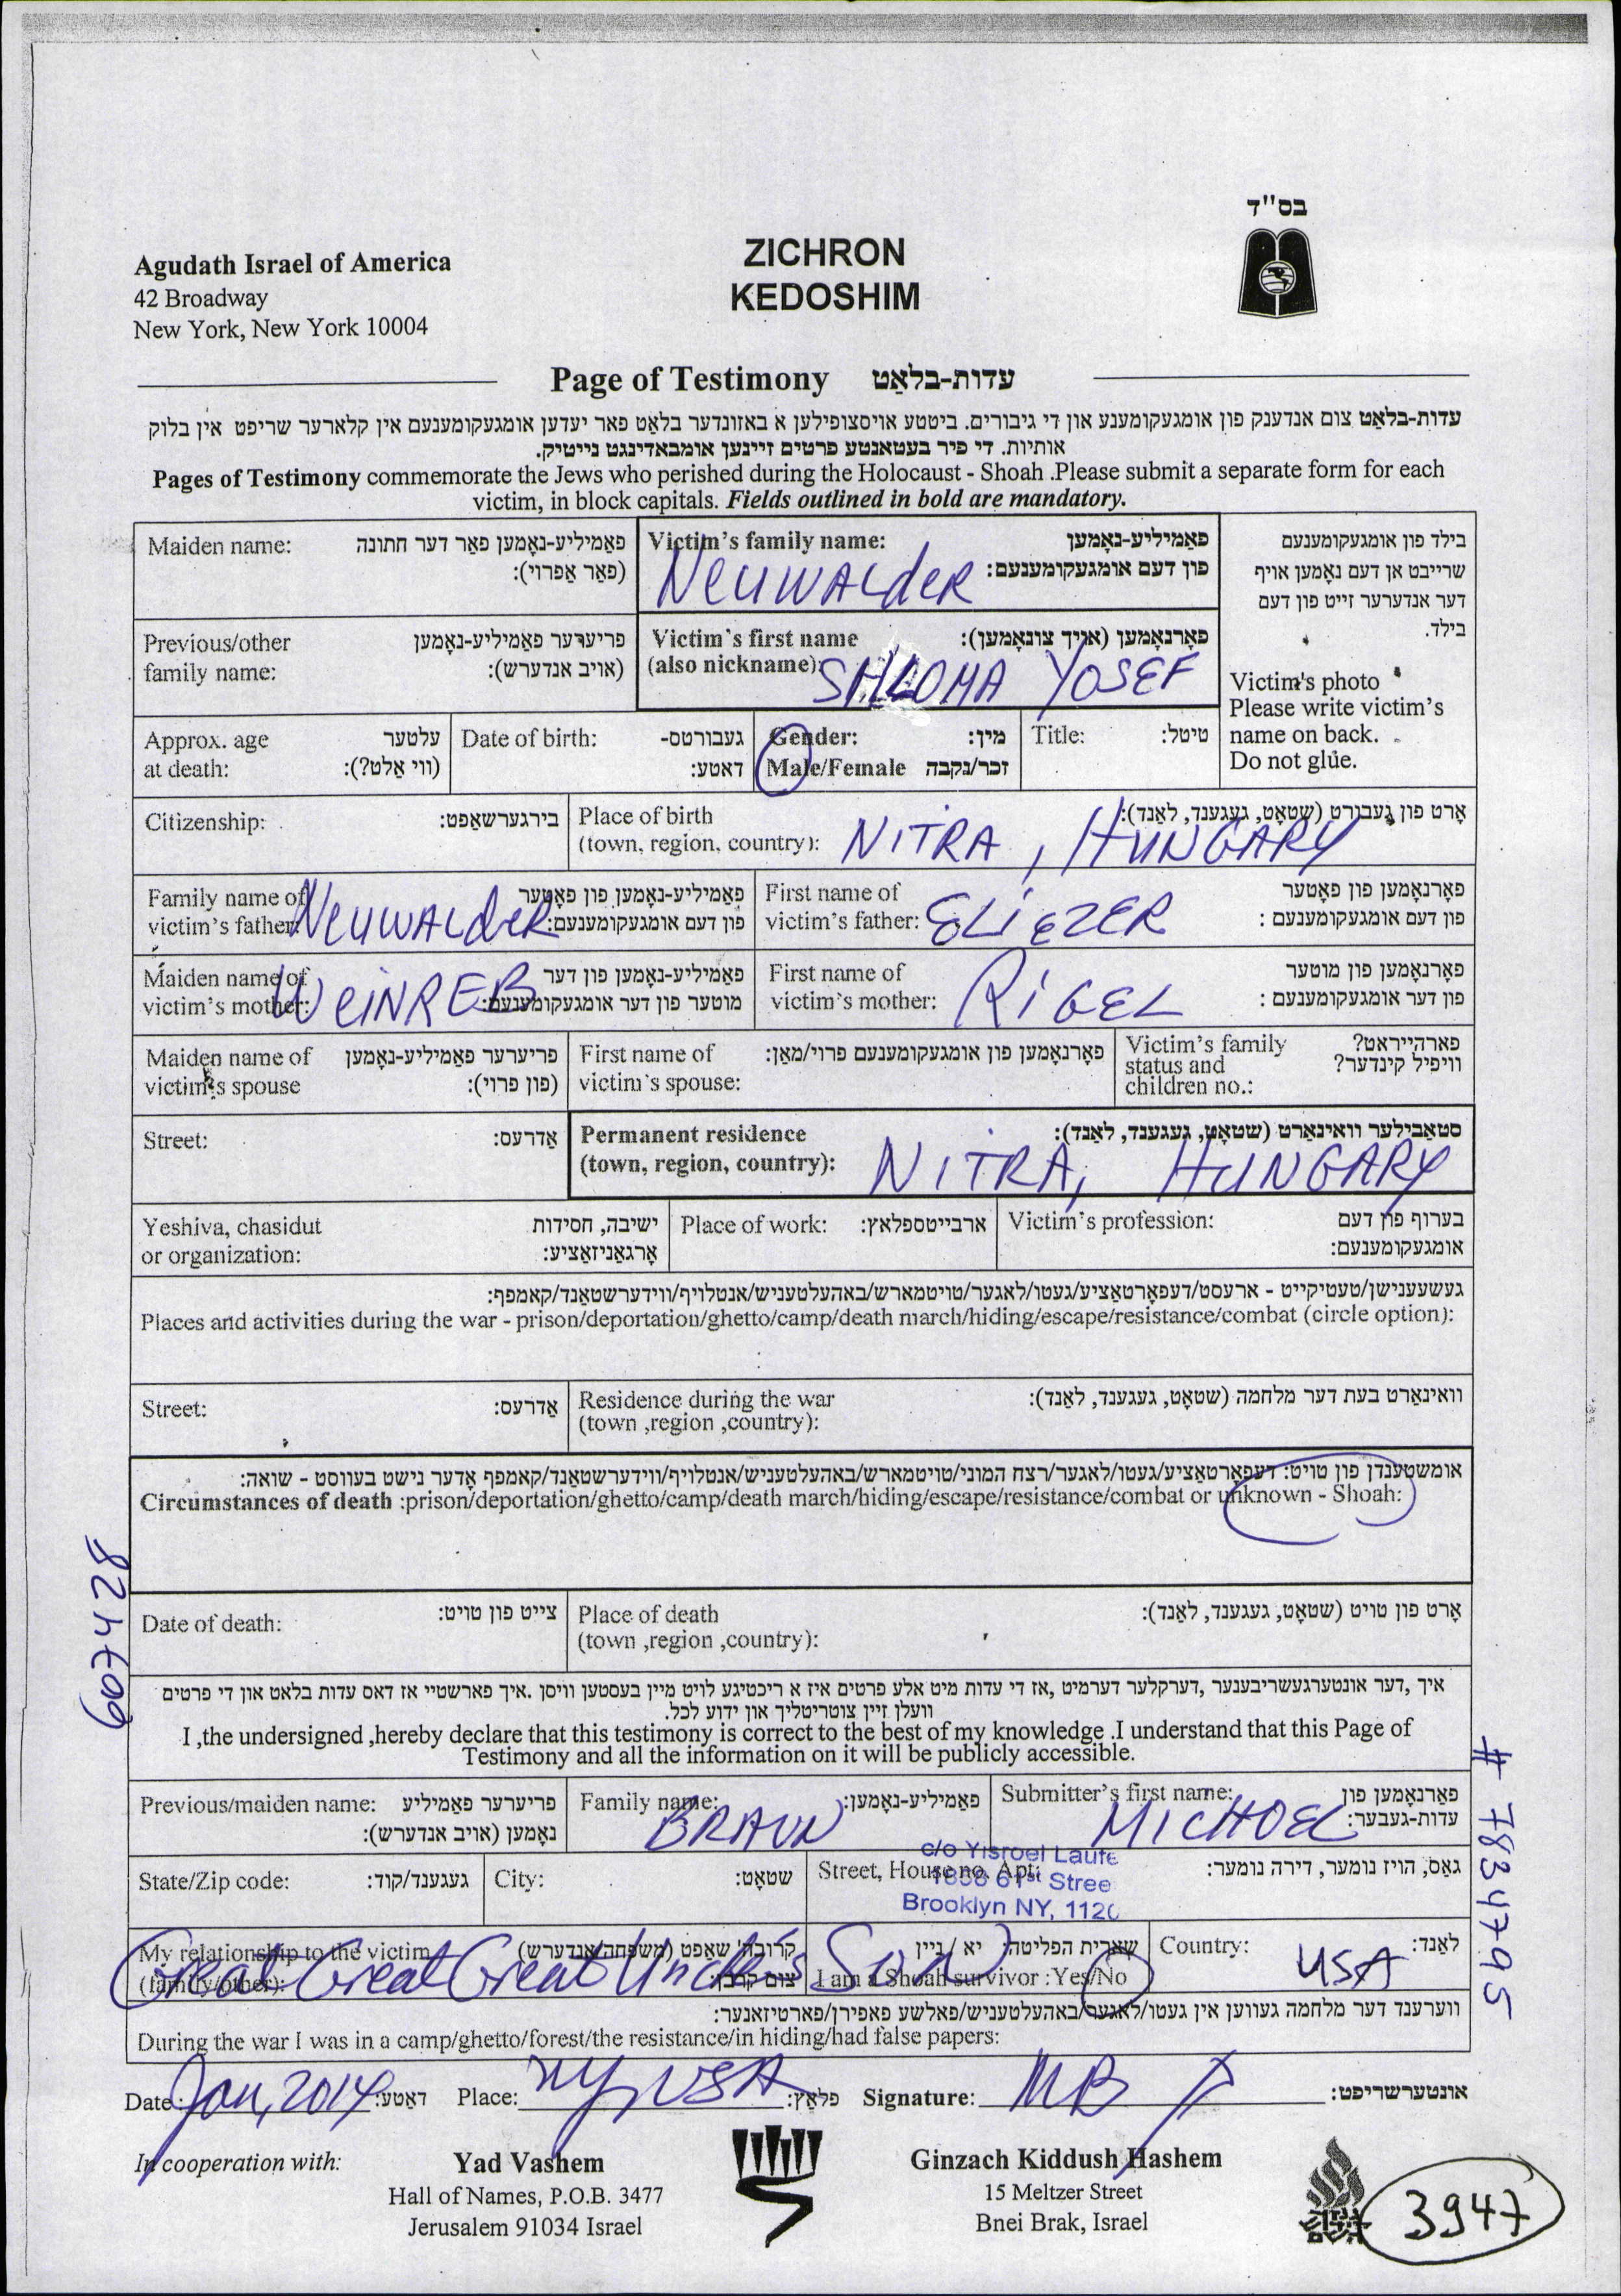 בס"ד
Agudath Israel of America
42 Broadway
New York, New York 10004
ZICHRON
KEDOSHIM
Page of Testimony עדות-בלאַט
עדות-בלאַט צום אנדענק פון אומגעקומענע און די גיבורים. ביטטע אויסצופילען א באזונדער בלאַט פאר יעדען אומגעקומענעם אין קלארער שריפט אין בלוק
אותיות. די פיר בעטאנטע פרטים זיינען אומבאדינגט נייטיק.
Pages of Testimony commemorate the Jews who perished during the Holocaust - Shoah .Please submit a separate form for each
victim, in block capitals. Fields outlined in bold are mandatory.
Maiden name: פאַמיליע-נאָמען פאַר דער חתונה
(פאַר אַפרוי):
Victim's family name: פאַמיליע-נאָמען
פון דעם אומגעקומענעם:
Neuwalder
בילד פון אומגעקומענעם
שרייבט אן דעם נאָמען אויף
דער אנדערער זייט פון דעם
בילד.
Victim's photo
Please write victim's
name on back.
Do not glue.
Previous/other פריערדער פאַמיליע-נאָמען
family name: (אויב אנדערש):
Victim's first name פאָרנאָמען (אויך צונאָמען):
(also nickname): SHLOMA YOSEF
Approx. age עלטער
at death: (ווי אַלט?):
Date of birth: געבורטס-
דאטע:
Gender: מין:
Male/Female זכר/נקבה
Title: טיטל:
Citizenship: בירגערשאַפט:
Place of birth אָרט פון געבורט (שטאָט, געגענד, לאַנד):
(town, region, country): NITRA, HUNGARY
Family name of פאַמיליע-נאָמען פון פאָטער
victim's father: Neuwalder פון דעם אומגעקומענעם:
First name of פאָרנאָמען פון פאָטער
victim's father: ELIEZER פון דעם אומגעקומענעם :
Maiden name of פאַמיליע-נאָמען פון דער
victim's mother: WEINREB מוטער פון דער אומגעקומענעם:
First name of פאָרנאָמען פון מוטער
victim's mother: RIGEL פון דער אומגעקומענעם :
Maiden name of פריערער פאַמיליע-נאָמען
victim's spouse (פון פרוי):
First name of פאָרנאָמען פון אומגעקומענעם פרוי/מאַן:
victim's spouse:
Victim's family פארהייראט?
status and וויפיל קינדער?
children no.:
Street: אַדרעס:
Permanent residence סטאַבילער וואינאַרט (שטאָט, געגענד, לאַנד):
(town, region, country): NITRA, HUNGARY
Yeshiva, chasidut ישיבה, חסידות
or organization: אָרגאַניזאַציע:
Place of work: ארבייטספלאץ:
Victim's profession: בערוף פון דעם
אומגעקומענעם:
געשעענישן/טעטיקייט - ארעסט/דעפאָרטאַציע/געטו/לאגער/טויטמארש/באהעלטעניש/אנטלויף/ווידערשטאַנד/קאמפף:
Places and activities during the war - prison/deportation/ghetto/camp/death march/hiding/escape/resistance/combat (circle option):
Street: אַדרעס:
Residence during the war וואינאַרט בעת דער מלחמה (שטאָט, געגענד, לאַנד):
(town ,region ,country):
אומשטענדן פון טויט: דעפאָרטאַציע/געטו/לאגער/רצח המוני/טויטמארש/באהעלטעניש/אנטלויף/ווידערשטאַנד/קאמפף אָדער נישט בעווסט - שואה:
Circumstances of death :prison/deportation/ghetto/camp/death march/hiding/escape/resistance/combat or unknown - Shoah:
607428
Date of death: צייט פון טויט:
Place of death אָרט פון טויט (שטאָט, געגענד, לאַנד):
(town ,region ,country):
איך ,דער אונטערגעשריבענער ,דערקלער דערמיט ,אז די עדות מיט אלע פרטים איז א ריכטיגע לויט מיין בעסטען וויסן .איך פארשטיי אז דאס עדות בלאט און די פרטים
וועלן זיין צוטריטליך און ידוע לכל.
I ,the undersigned ,hereby declare that this testimony is correct to the best of my knowledge .I understand that this Page of
Testimony and all the information on it will be publicly accessible.
Previous/maiden name: פריערער פאַמיליע
נאָמען (אויב אנדערש):
Family name: פאַמיליע-נאָמען:
BRAUN
Submitter's first name: פאָרנאָמען פון
עדות-געבער:
MICHOEL
# 7834795
State/Zip code: געגענד/קוד:
City: שטאָט:
Street, House no. Apt: גאַס, הויז נומער, דירה נומער:
c/o Yisroel Laufe
1838 61st Stree
Brooklyn NY, 1120
My relationship to the victim קרובה'שאַפט (משפּחה/אנדערש)
(family/other): צום קרבן:
Great Great Great Uncle's Son
שארית הפליטה? יא / ניין
I am a Shoah survivor :Yes/No
Country: לאַנד:
USA
ווערענד דער מלחמה געווען אין געטו/לאגער/באהעלטעניש/פאלשע פאפירן/פארטיזאנער:
During the war I was in a camp/ghetto/forest/the resistance/in hiding/had false papers:
Date: Jan, 2014 דאַטע: Place: NY, USA פלאַץ: Signature: MB אונטערשריפט:
In cooperation with:
Yad Vashem
Hall of Names, P.O.B. 3477
Jerusalem 91034 Israel
Ginzach Kiddush Hashem
15 Meltzer Street
Bnei Brak, Israel
3947